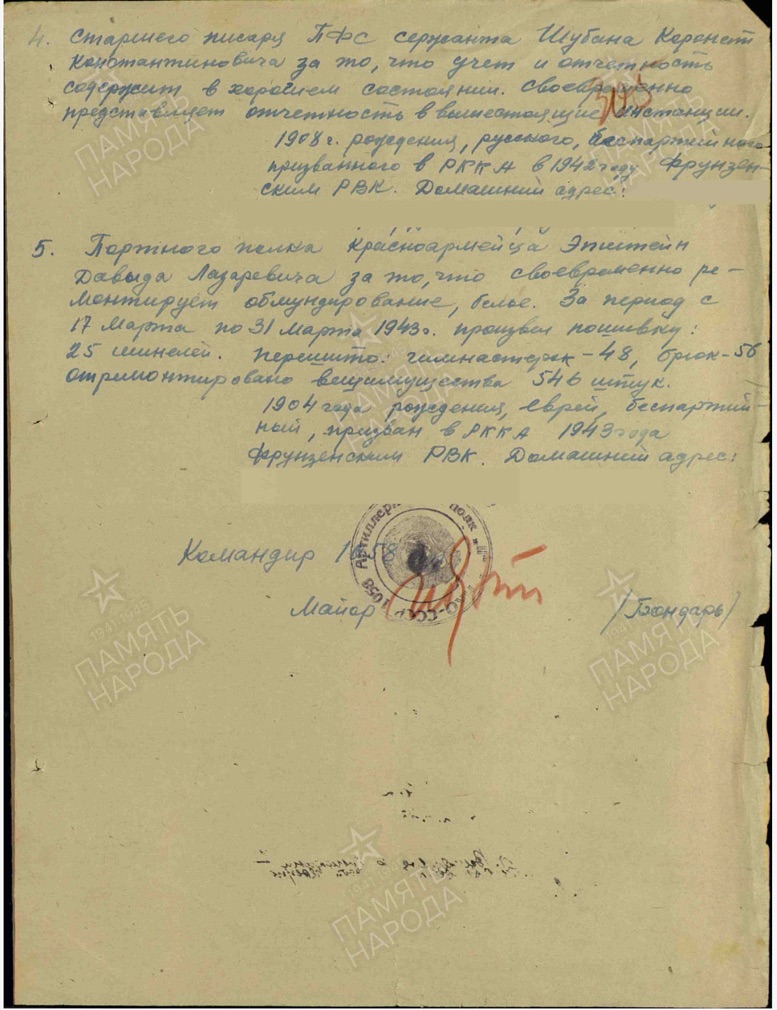 4. Старшего писаря ПФС сержанта Шубина
Константиновича за то, что учет и отчетность
содержит в хорошем состоянии. Своевременно
представляет отчетность в вышестоящие инстанции.
1908 г. рождения, русского, беспартийного
призванного в РККА в 1942 году Фрунзен-
ским РВК. Домашний адрес:
5. Портного полка Красноармейца Эпштейн
Давыда Лазаревича за то, что своевременно ре-
монтирует обмундирование, белье. За период с
17 Марта по 31 Марта 1943 г. произвел пошивку:
25 шинелей. перешито: гимнастерок - 48, брюк - 56
отремонтировано вещимущества 546 штук.
1904 года рождения, еврей, беспартий-
ный, призван в РККА 1943 года
Фрунзенским РВК. Домашний адрес:
1058 Артиллер полк
СССР
Командир 1058
Майор /Бондарь/
ПАМЯТЬ НАРОДА
ПАМЯТЬ НАРОДА
ПАМЯТЬ НАРОДА
ПАМЯТЬ НАРОДА
ПАМЯТЬ НАРОДА
ПАМЯТЬ НАРОДА